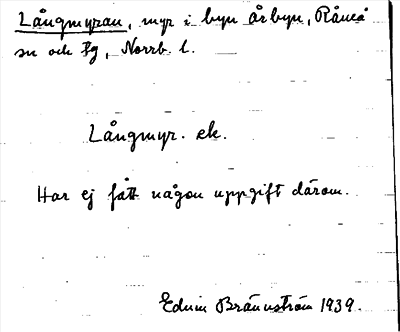 Långmyran, myr i byn Årbyn, Råneå
sn och tg, Norrb. l.
Långmyr. ek.
Har ej fått någon uppgift därom.
Edvin Brännström 1939.